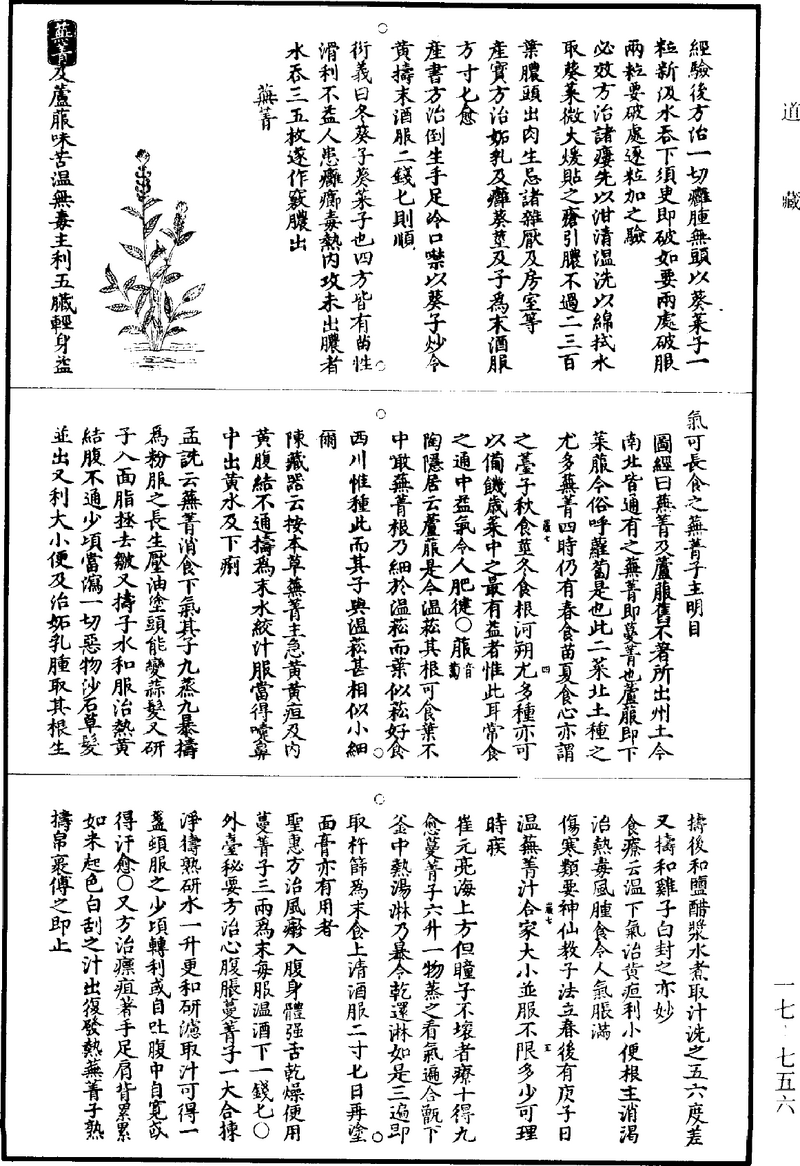 道藏
經驗後方治一切癰腫無頭以葵菜子一
粒新汲水吞下須臾即破如要兩處破服
兩粒要破處逐粒加之驗
必效方治諸瘻先以泔清溫洗以綿拭水
取葵菜微火煖貼之瘡引膿不過二三百
葉膿頭出肉生忌諸雜厭及房室等
產寶方治妬乳及癰葵莖及子為末酒服
方寸匕愈
產書方治倒生手足冷口噤以葵子炒令
黃擣末酒服二錢匕則順
衍義曰冬葵子葵菜子也四方皆有苗性
滑利不益人患癰癤毒熱內攻未出膿者
水吞三五枚遂作竅膿出
蕪菁
蕪菁及蘆菔味苦溫無毒主利五臟輕身益
氣可長食之蕪菁子主明目
圖經曰蕪菁及蘆菔舊不著所出州土今
南北皆通有之蕪菁即蔓菁也蘆菔即下
菜菔今俗呼蘿蔔是也此二菜北土種之
尤多蕪菁四時仍有春食苗夏食心亦謂
之薹子秋食莖冬食根河朔尤多種亦可
以備饑歲菜中之最有益者惟此耳常食
之通中益氣令人肥健○菔音蔔
陶隱居云蘆菔是今溫菘其根可食葉不
中噉蕪菁根乃細於溫菘而葉似菘好食
西川惟種此而其子與溫菘甚相似小細
爾
陳藏器云按本草蕪菁主急黃黃疸及內
黃腹結不通擣為末水絞汁服當得嚏鼻
中出黃水及下痢
孟詵云蕪菁消食下氣其子九蒸九暴擣
為粉服之長生壓油塗頭能變蒜髮又研
子入面脂極去皺又擣子水和服治熱黃
結腹不通少頃當瀉一切惡物沙石草髮
並出又利大小便及治妬乳腫取其根生
擣後和鹽醋漿水煮取汁洗之五六度差
又擣和雞子白封之亦妙
食療云溫下氣治黃疸利小便根主消渴
治熱毒風腫食令人氣脹滿
傷寒類要神仙教子法立春後有庚子日
溫蕪菁汁合家大小並服不限多少可理
時疾
崔元亮海上方但瞳子不壞者療十得九
愈蔓菁子六升一物蒸之看氣遍合甑下
釜中熱湯淋乃暴令乾還淋如是三遍即
取杵篩為末食上清酒服二寸匕日再塗
面膏亦有用者
聖惠方治風癈入腹身體強舌乾燥便用
蔓菁子三兩為末每服溫酒下一錢匕○
外臺秘要方治心腹脹蔓菁子一大合揀
淨擣熟研水一升更和研濾取汁可得一
盞頓服之少頃轉利或自吐腹中自寬或
得汗愈○又方治瘭疽著手足肩背累累
如米起色白刮之汁出復發熱蕪菁子熟
擣帛裹傅之即止
一七·七五六